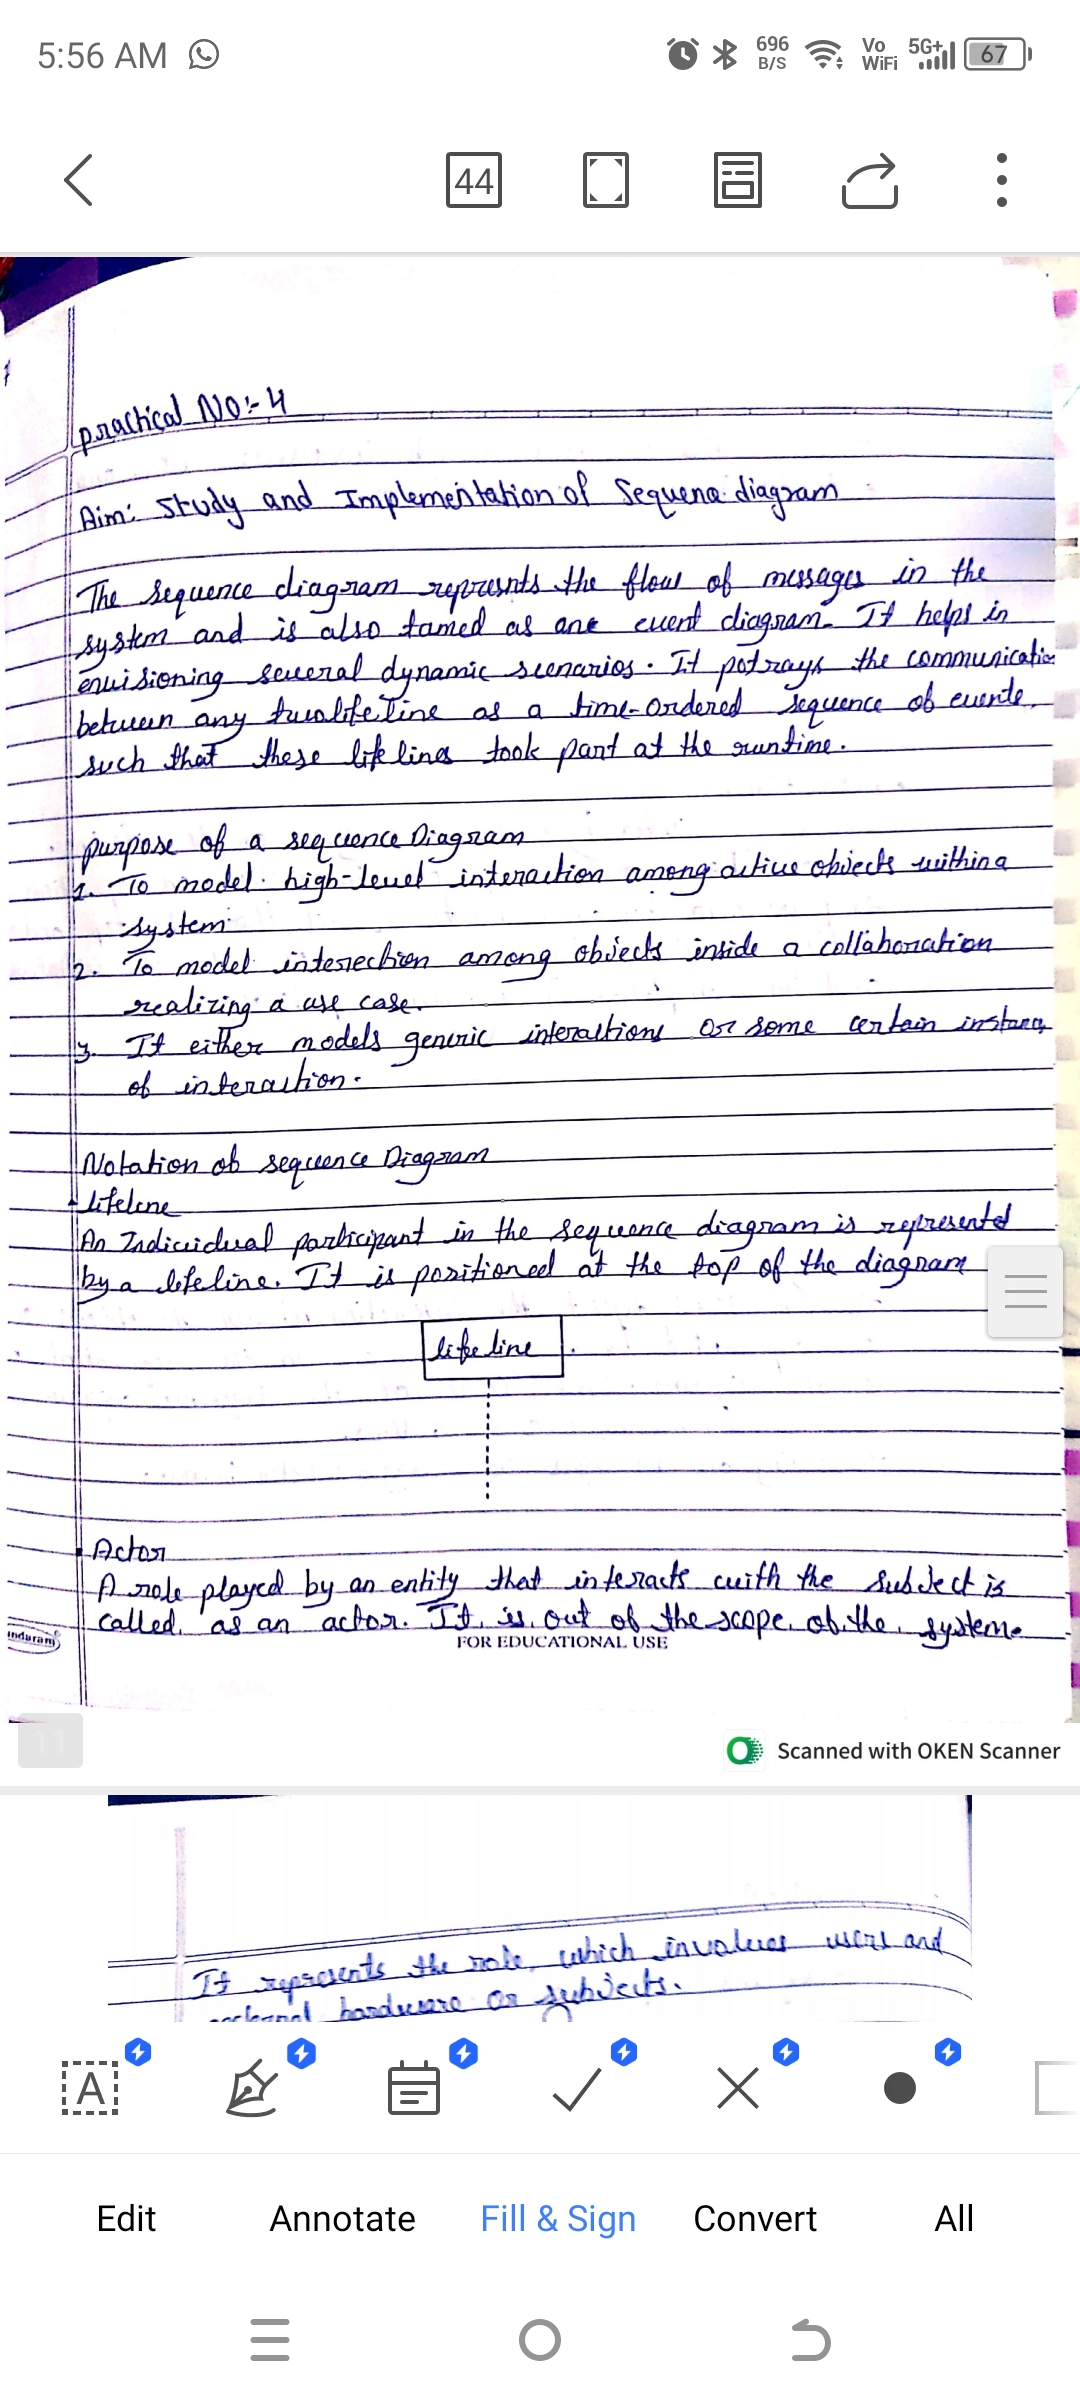 5:56 AM
696 B/S
Vo WiFi
5G+
67
44
practical No:- 4
Aim: Study and Implementation of Sequena diagram
The sequence diagram represnts the flow of messages in the
system and is also tamed as ane event diagram. It helps in
envisioning several dynamic scenarios. It potrays the communicatio
between any two lifeline as a time-ordered sequence of events,
such that these life lines took part at the runtime.
purpose of a sequence Diagram
1. To model high-level interaction among active objects within a
system
2. To model interection among objects inside a collaboration
realizing a use case.
3. It either models generic interactions or some certain instance
of interaction.
Notation of sequence Diagram
lifeline
An Individual participant in the sequence diagram is represented
by a lifeline. It is positioned at the top of the diagram
life line
Actor
A role played by an entity that interacts with the subject is
called as an actor. It is out of the scope of the system.
indaram
FOR EDUCATIONAL USE
11
Scanned with OKEN Scanner
It represents the role, which involves users and
hardware or subjects.
A
Edit Annotate Fill & Sign Convert All